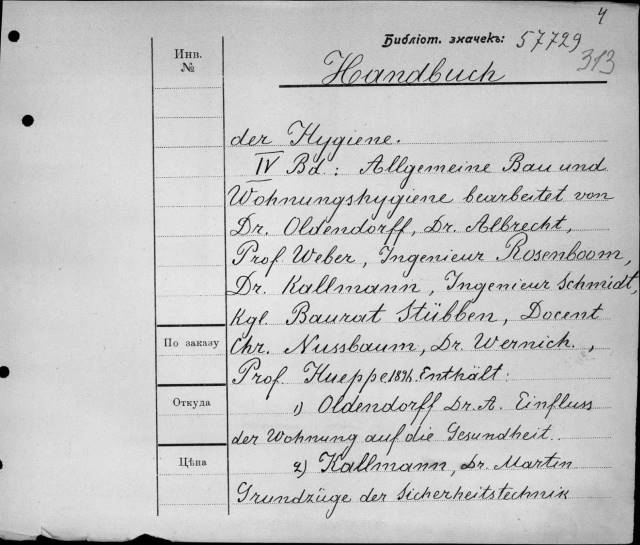 4
Библіот. значекъ: 57729
313
Инв.
№
Handbuch
der Hygiene.
IV Bd.: Allgemeine Bau und
Wohnungshygiene bearbeitet von
Dr. Oldendorff, Dr. Albrecht,
Prof. Weber, Ingenieur Rosenboom,
Dr. Kallmann, Ingenieur Schmidt,
Kgl. Baurat Stübben, Docent
По заказу
Chr. Nussbaum, Dr. Wernich.,
Prof. Hueppe 1896. Enthält:
Откуда
1) Oldendorff Dr. A. Einfluss
der Wohnung auf die Gesundheit..
Цѣна
2) Kallmann, Dr. Martin
Grundzüge der Sicherheitstechnik